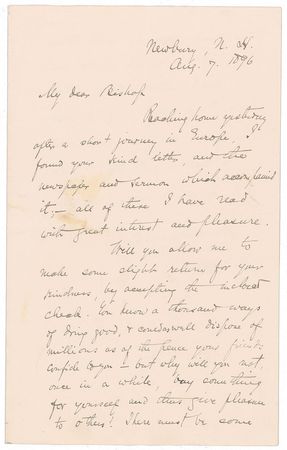 Newbury, N. H.
Aug. 7. 1896
My dear Bishop
Reaching home yesterday
after a short journey in Europe, I
found your kind letter, and the
newspaper and sermon which accompanied
it, – all of these I have read
with great interest and pleasure.
Will you allow me to
make some slight return for your
kindness, by accepting the inclosed
check. You know a thousand ways
of doing good, & could as well dispose of
millions as of the pence your friends
confide to you – but why will you not,
once in a while, buy something
for yourself and thus give pleasure
to others? There must be some